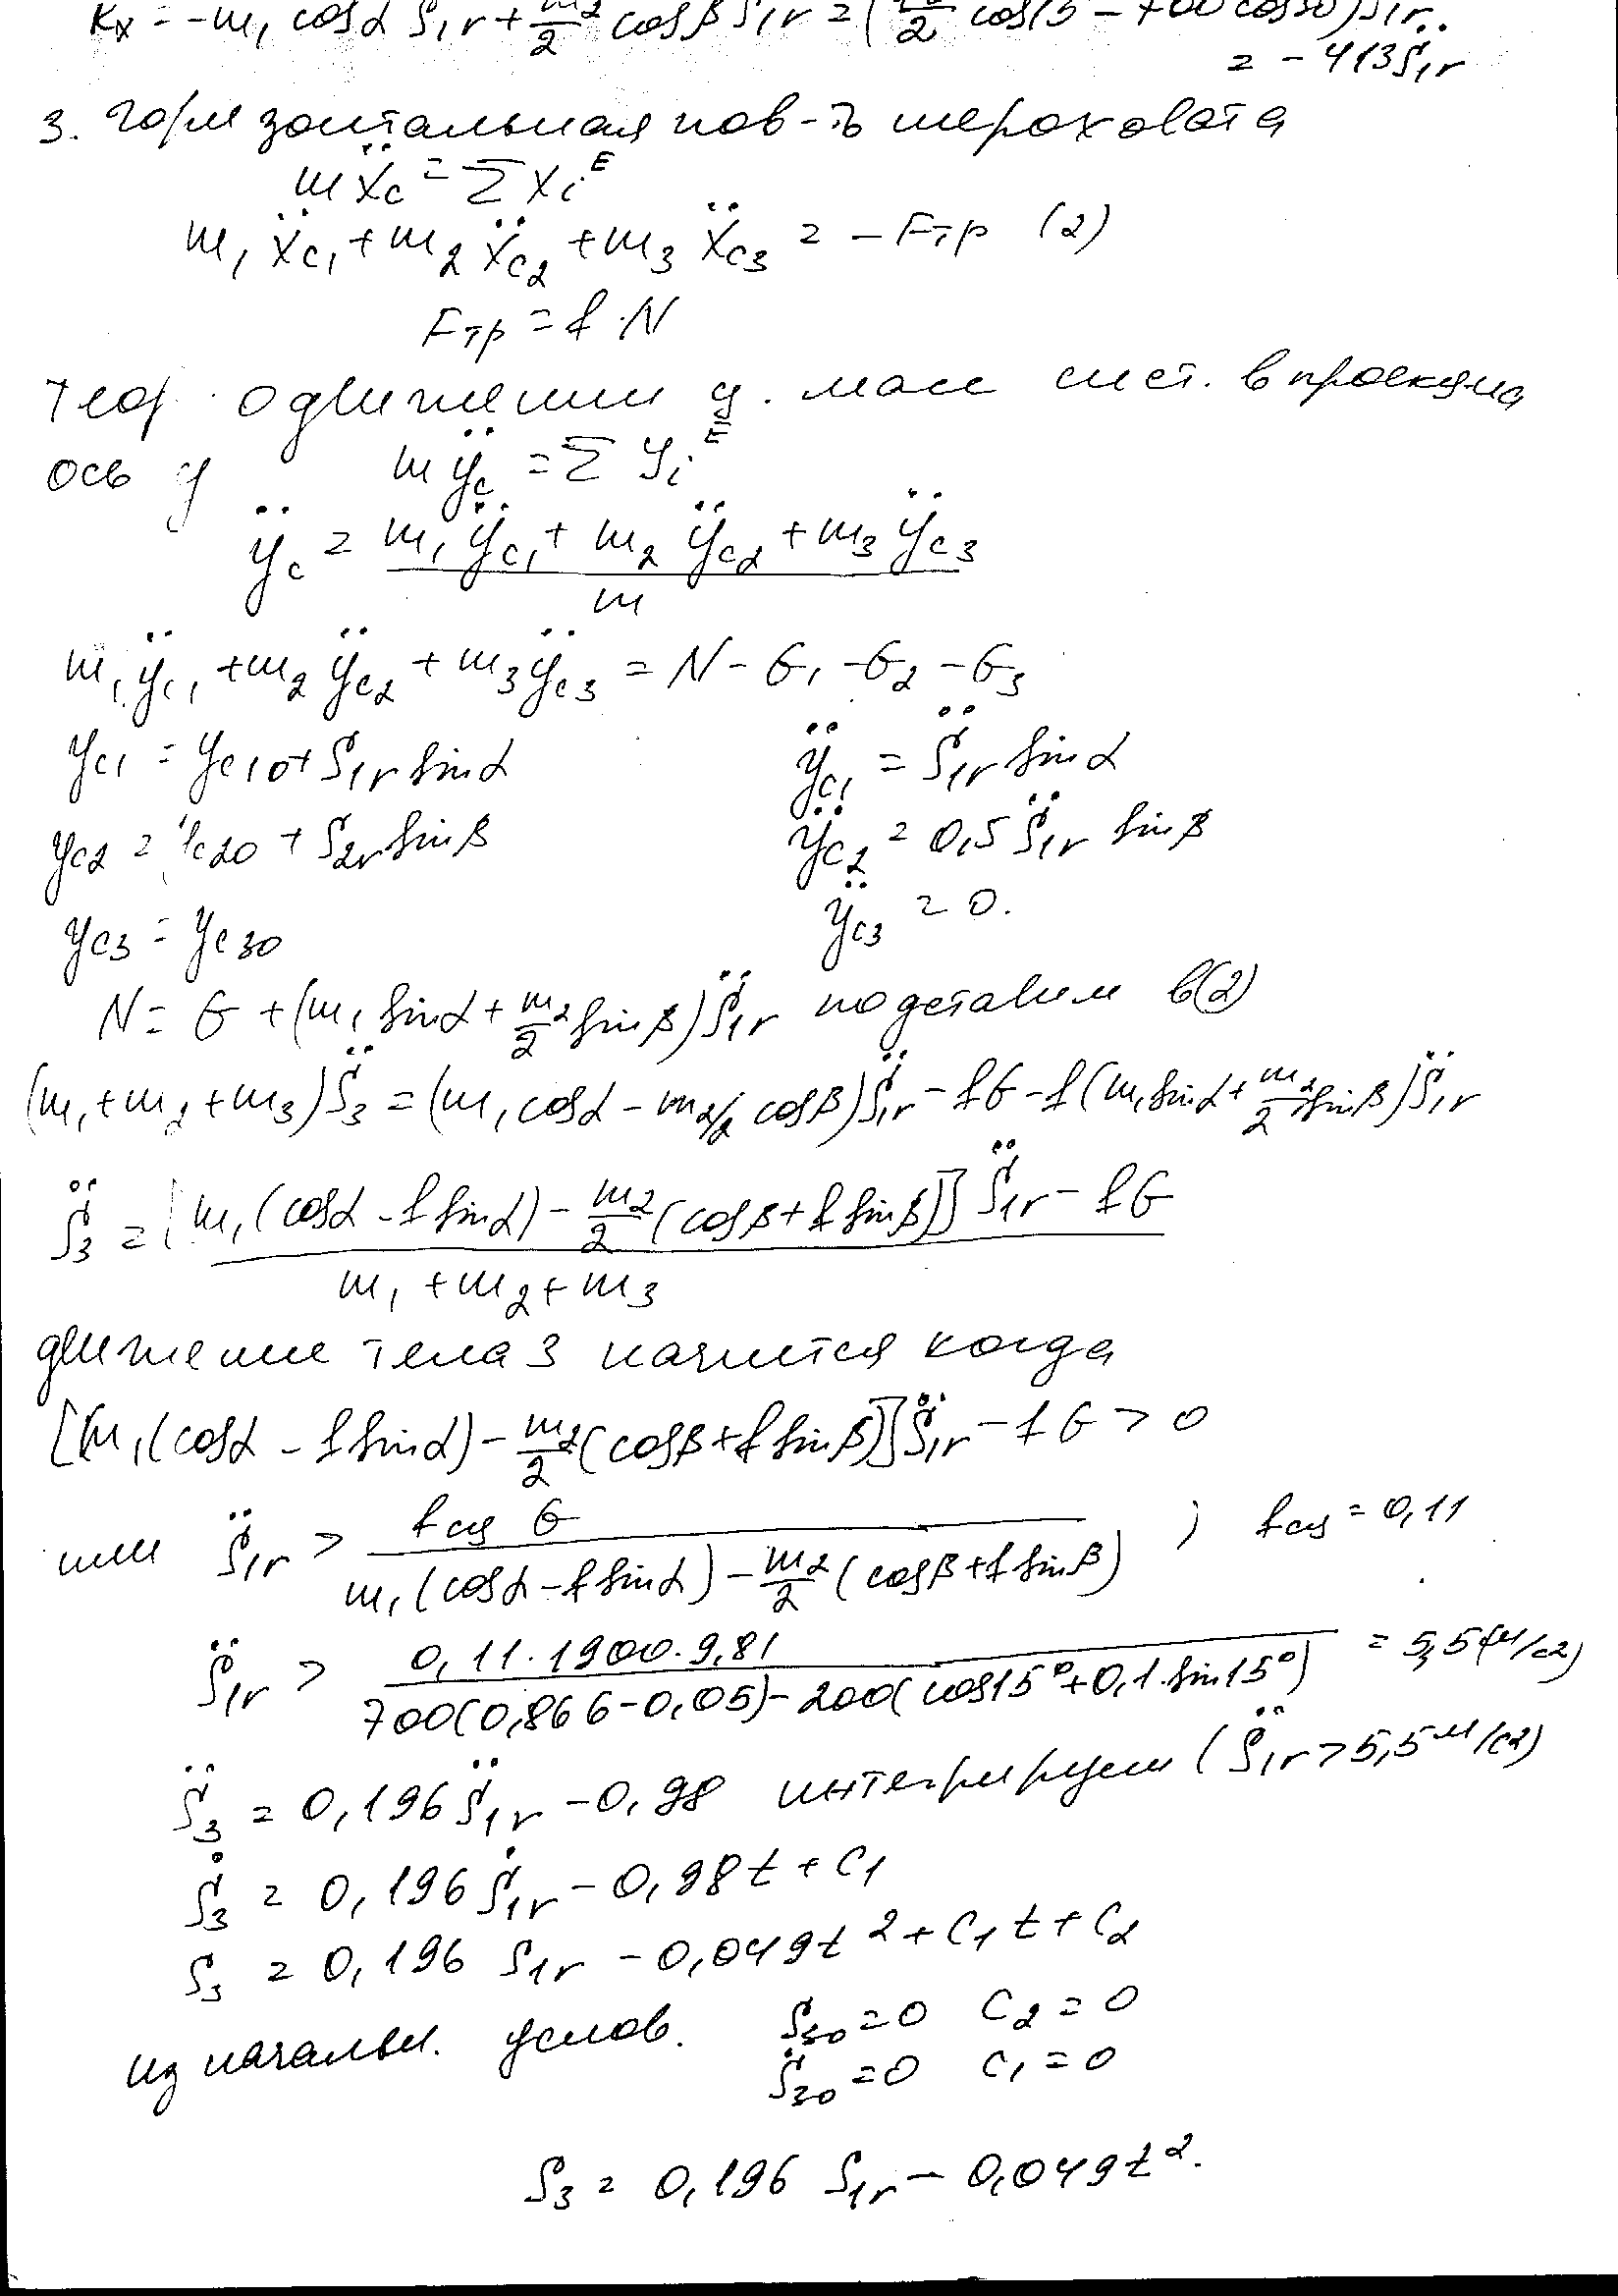 Kx = -m₁ cosα S̈₁r + m₂/2 cosβ S̈₁r = ( /2 cos15 - 700 cos30) S̈₁r.
= -413 S̈₁r
3. горизонтальная пов-ть шероховата
mẍc = Σ Xiᴱ
m₁ẍc₁ + m₂ẍc₂ + m₃ẍc₃ = -Fтр (2)
Fтр = f·N
теор. о движении ц. масс сист. в проекц на
ось y mÿc = Σ Yiᴱ
ÿc = (m₁ÿc₁ + m₂ÿc₂ + m₃ÿc₃)/m
m₁ÿc₁ + m₂ÿc₂ + m₃ÿc₃ = N - G₁ - G₂ - G₃
yc₁ = yc₁₀ + S₁r sinα ÿc₁ = S̈₁r sinα
yc₂ = yc₂₀ + S₂r sinβ ÿc₂ = 0,5 S̈₁r sinβ
yc₃ = yc₃₀ ÿc₃ = 0.
N = G + (m₁ sinα + m₂/2 sinβ) S̈₁r подставим в (2)
(m₁ + m₂ + m₃) S̈₃ = (m₁ cosα - m₂/2 cosβ) S̈₁r - fG - f(m₁ sinα + m₂/2 sinβ) S̈₁r
S̈₃ = ([m₁(cosα - f sinα) - m₂/2 (cosβ + f sinβ)] S̈₁r - fG)/(m₁ + m₂ + m₃)
движение тела 3 начнется когда
[m₁(cosα - f sinα) - m₂/2 (cosβ + f sinβ)] S̈₁r - fG > 0
или S̈₁r > fсц G/(m₁(cosα - f sinα) - m₂/2 (cosβ + f sinβ)) ; fсц = 0,11
S̈₁r > 0,11·1900·9,81/(700(0,866 - 0,05) - 200(cos15° + 0,1·sin15°)) = 5,5 (м/с2)
S̈₃ = 0,196 S̈₁r - 0,98 интегрируем (S̈₁r > 5,5 м/с2)
Ṡ₃ = 0,196 Ṡ₁r - 0,98t + C₁
S₃ = 0,196 S₁r - 0,049t² + C₁t + C₂
из начальн. услов. S₃₀ = 0 C₂ = 0
Ṡ₃₀ = 0 C₁ = 0
S₃ = 0,196 S₁r - 0,049t².